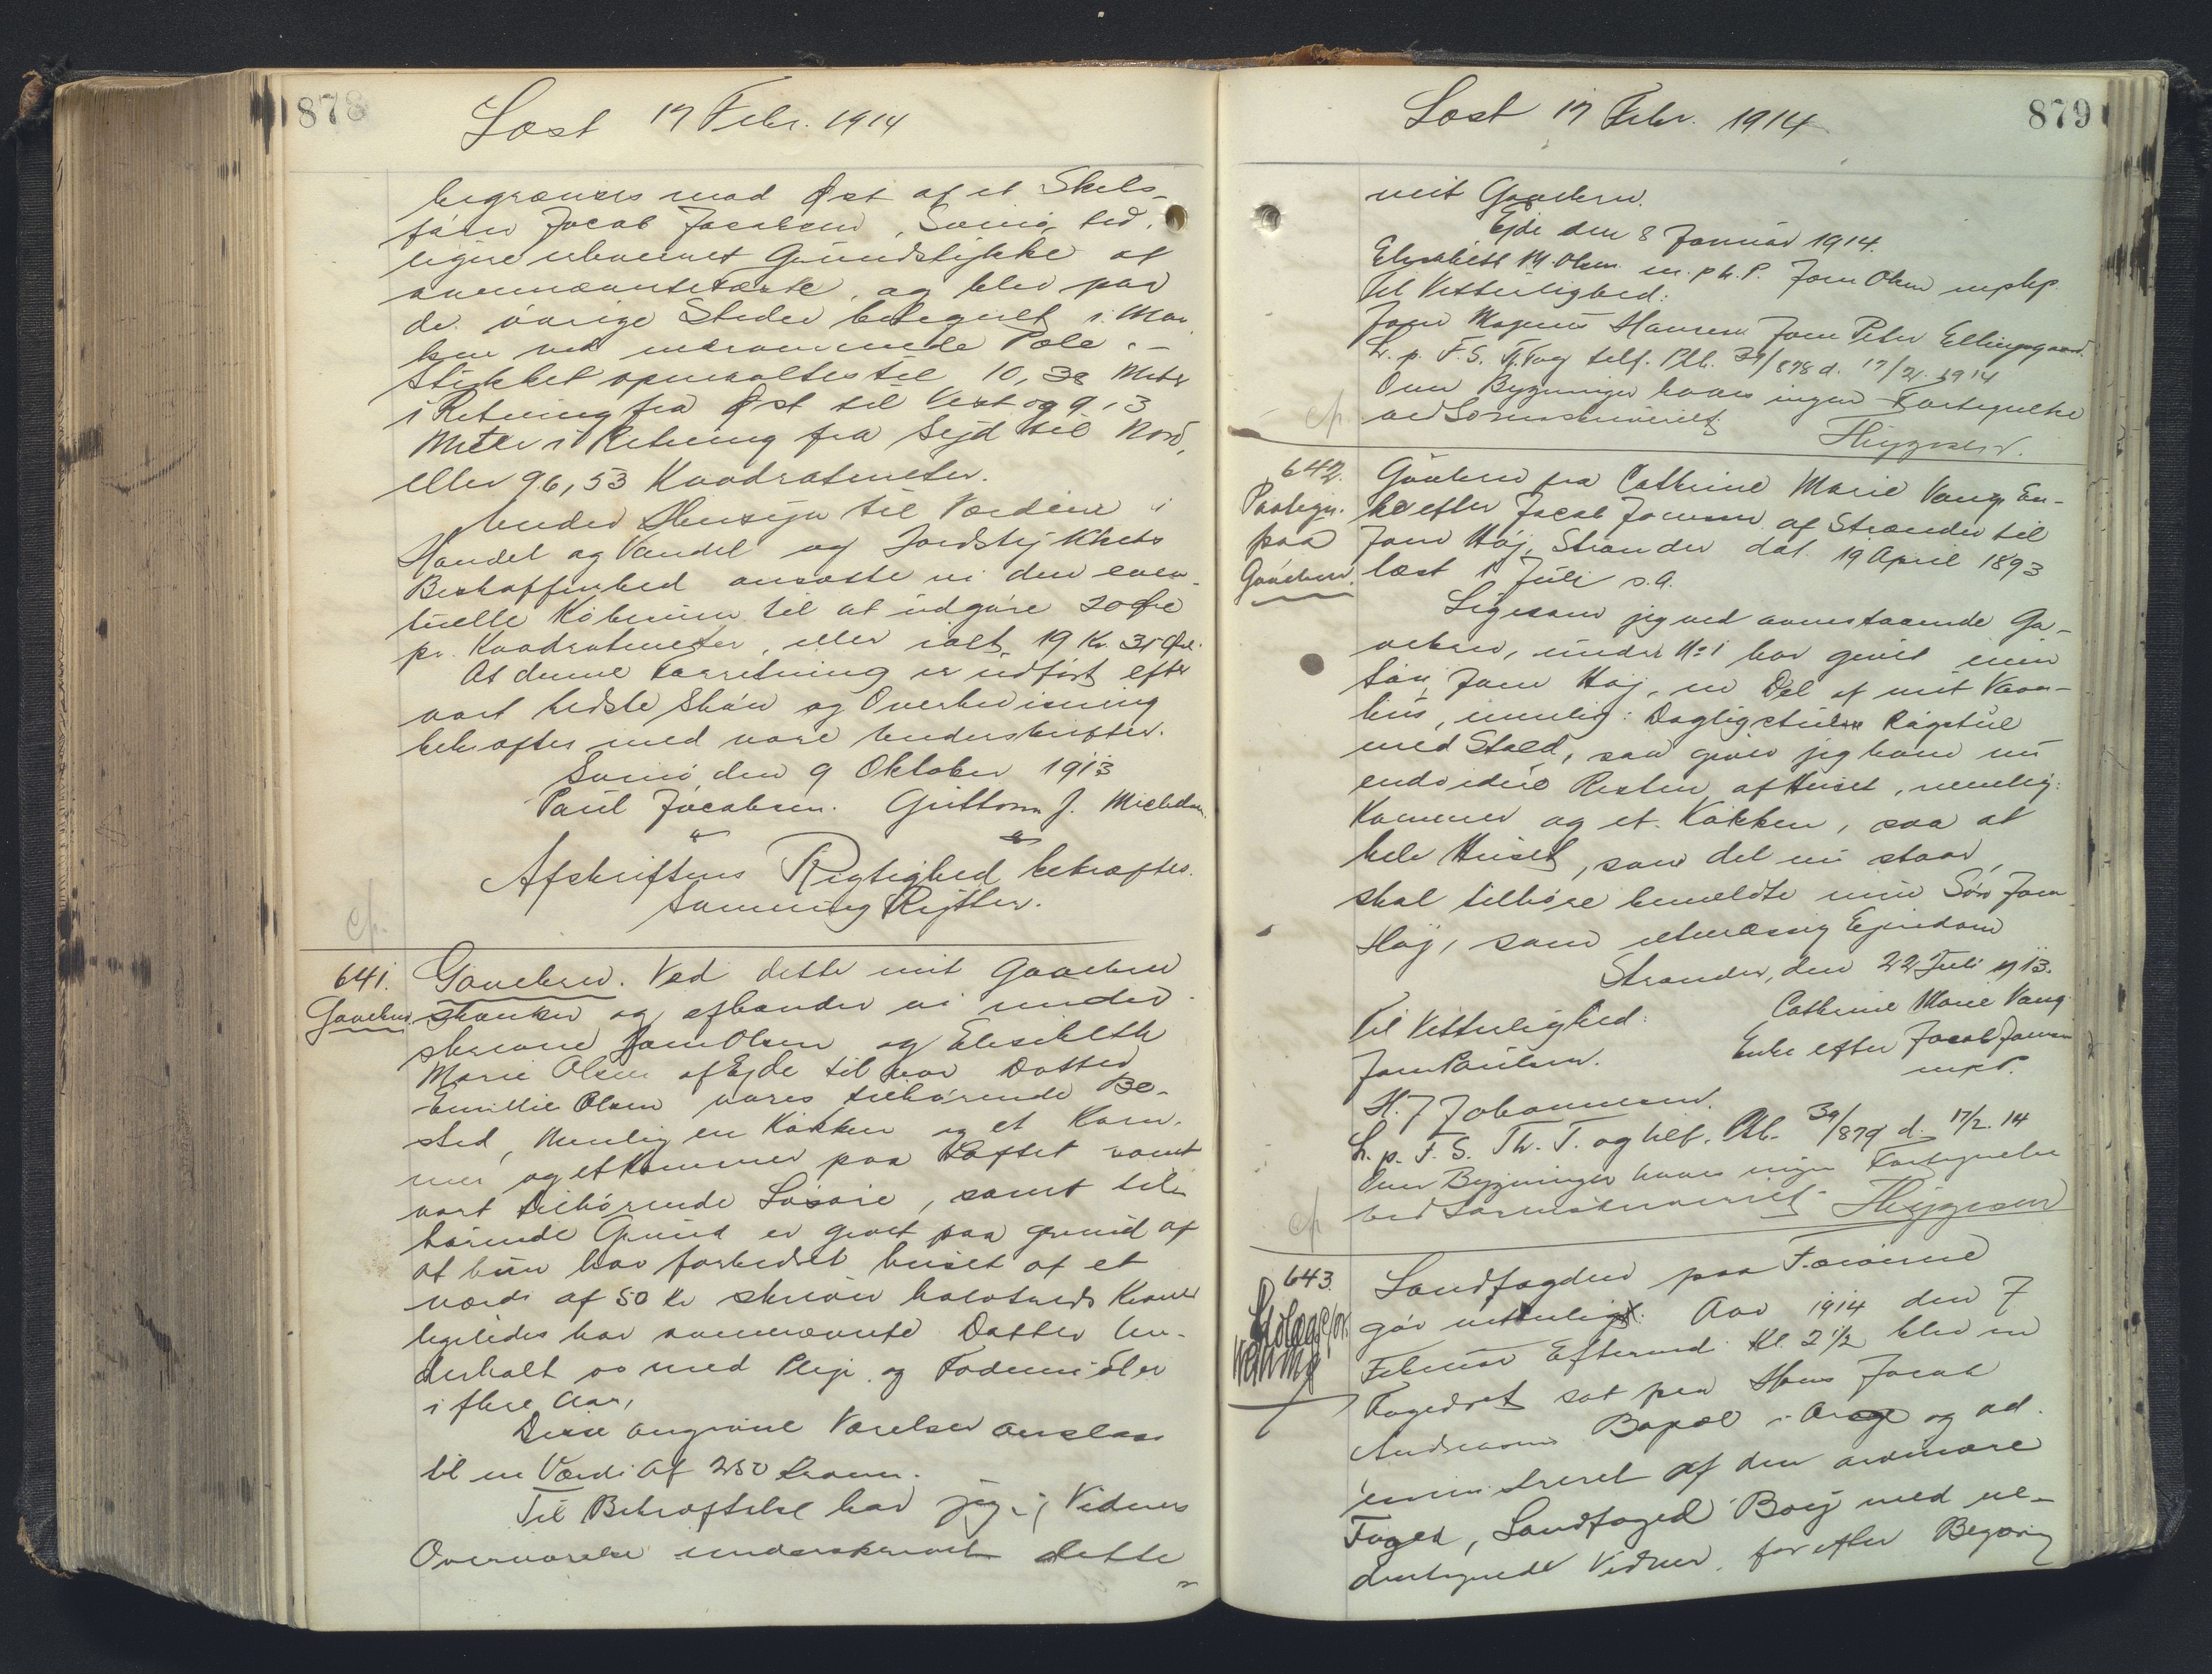 878
Læst 17 Febr. 1914
begrænses mod Øst af et Skels-
fører Jacob Jacobsen, Sumø, tid-
ligere udvisnet Grundstykke af
ovennævnte, og blev paa
de øvrige Steder betegnet i Mar
ken ved nedrammede Pæle. –
Stykket opmaaltes til 10,38 Meter
i Retning fra Øst til Vest og 9,3
Meter i Retning fra Syd til Nord,
eller 96,53 Kvadratmeter.
Under Hensyn til Værdierne i
Handel og Vandel og Jordstykkets
Beskaffenhed ansatte vi den even-
tuelle Købesum til at udgøre 20 Øre
pr. Kvadratmeter, eller ialt 19 Kr. 31 Øre.
At denne Forretning er udført efter
vort bedste Skøn og Overbevisning
bekræftes med vore Underskrifter.
Sumø den 9 Oktober 1913
Paul Jacobsen. Guttorm J. Michelsen.
Afskriftens Rigtighed bekræftes.
cp.
641. Gavebrev. Ved dette mit Gavebrev
Gavebrev skænker og afhænder vi under-
skrevne Joen Olsen og Elisabeth
Marie Olsen af Ejde til vor Datter
Emillie Olsen vores tilhørende Bo-
sted, Nemlig en Køkken og et Kam-
mer og et Kammer paa Loftet samt
vort tilhørende Løsøre, samt til-
hørende Grund er givet paa grund af
at hun har forbedret huset af et
værdi af 50 Kr skriver halvtreds Kroner
ligeledes har ovennævnte Datter un-
derholt os med Pleje og Fødemidler
i flere Aar,
Disse angivne Værelser anslaas
til en Værdi Af 250 Kroner.
Til Bekræftelse har jeg i Vidners
Overværelse underskrevet dette
879
Læst 17 Febr. 1914
mit Gavebrev.
Ejde den 8 Januar 1914.
Elisabeth M. Olsen m. p. P. Joen Olsen mphp.
Til Vitterlighed:
Joen Magnus Hansen Joen Peter Ellingsgaard.
L. p. F. S. Th. Ting Self. Ptb. 39/878 d. 17/2 1914
Over Bygninger haves ingen Fortegnelse
ved Sorenskriveriet.
cp.
642. Gavebrev fra Cathrine Marie Vang En-
Paategn. ke efter Jacob Joensen af Strænder til
paa Joen Høj, Strænder dat. 19 April 1893
Gavebrev. læst 1 Juli s. A.
Ligesom jeg ved ovenstaaende Ga-
vebrev, under No 1 har givet min
Søn, Joen Høj, en Del af mit Vaan-
hus, nemlig: Dagligstuen Røgstue
med Stald, saa giver jeg ham nu
endvidere Resten af Huset, nemlig:
Kammer og et Køkken, saa at
hele Huset, som det nu staar,
skal tilhøre bemeldte min Søn Joen
Høj, som retmæssig Ejendom
Strænder, den 22 Juli 1913.
Til Vitterlighed: Cathrine Marie Vang
Joen Poulsen. Enke efter Jacob Joensen
H. J Johannesen. mxP.
L. p. F. S. Th. T. og Self. Ptb. 39/879 d. 17/2. 14
Over Bygninger haves ingen Fortegnelse
ved Sorenskriveriet.
cp
643. Landfogden paa Færøerne
gør vitterligt: Aar 1914 den 7
Februar Eftermd. Kl. 2 1/2 blev en
Fogedret sat paa Hans Jacob
Andreasens Bopæl i Arge og ad-
ministreret af den ordinære
Foged, Landfoged Bøej med un-
dertegnede Vidner, for efter Begæring